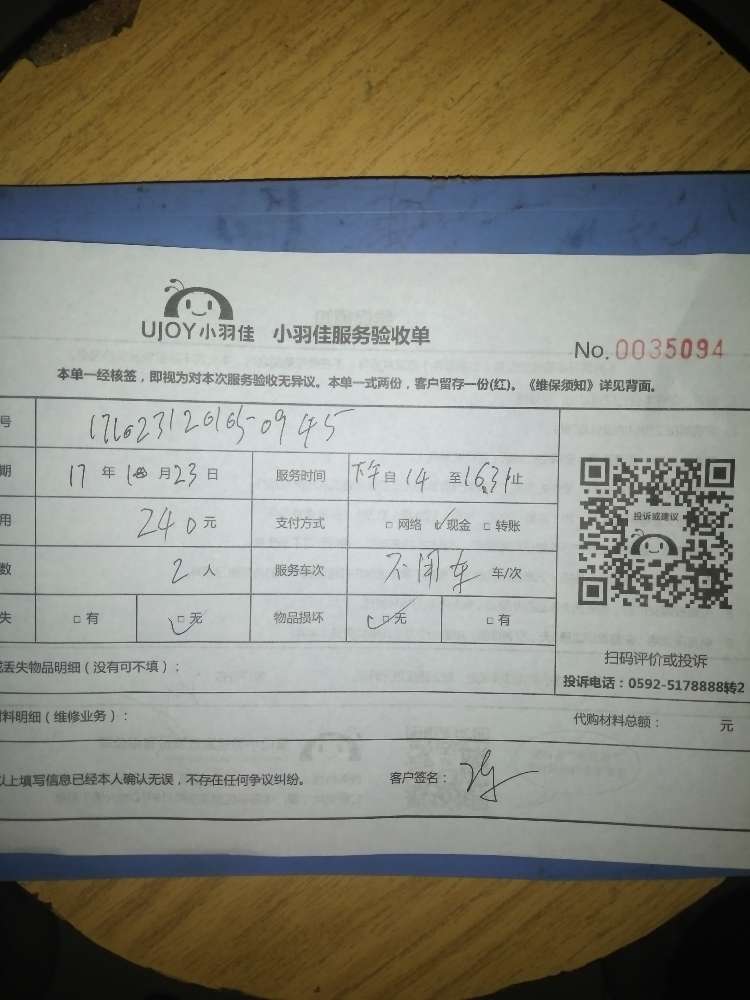 UJOY小羽佳 小羽佳服务验收单
No. 0035094
本单一经核签，即视为对本次服务验收无异议。本单一式两份，客户留存一份(红)。《维保须知》详见背面。
号 1710231201650945
期 17 年 10 月 23 日 服务时间 下午 自 14 至 16.31 止
用 240 元 支付方式 □ 网络 ☑ 现金 □ 转账
数 2 人 服务车次 不用车 车/次
失 □ 有 ☑ 无 物品损坏 ☑ 无 □ 有
投诉或建议
扫码评价或投诉
投诉电话：0592-5178888转2
或丢失物品明细（没有可不填）：
材料明细（维修业务）： 代购材料总额： 元
以上填写信息已经本人确认无误，不存在任何争议纠纷。 客户签名：